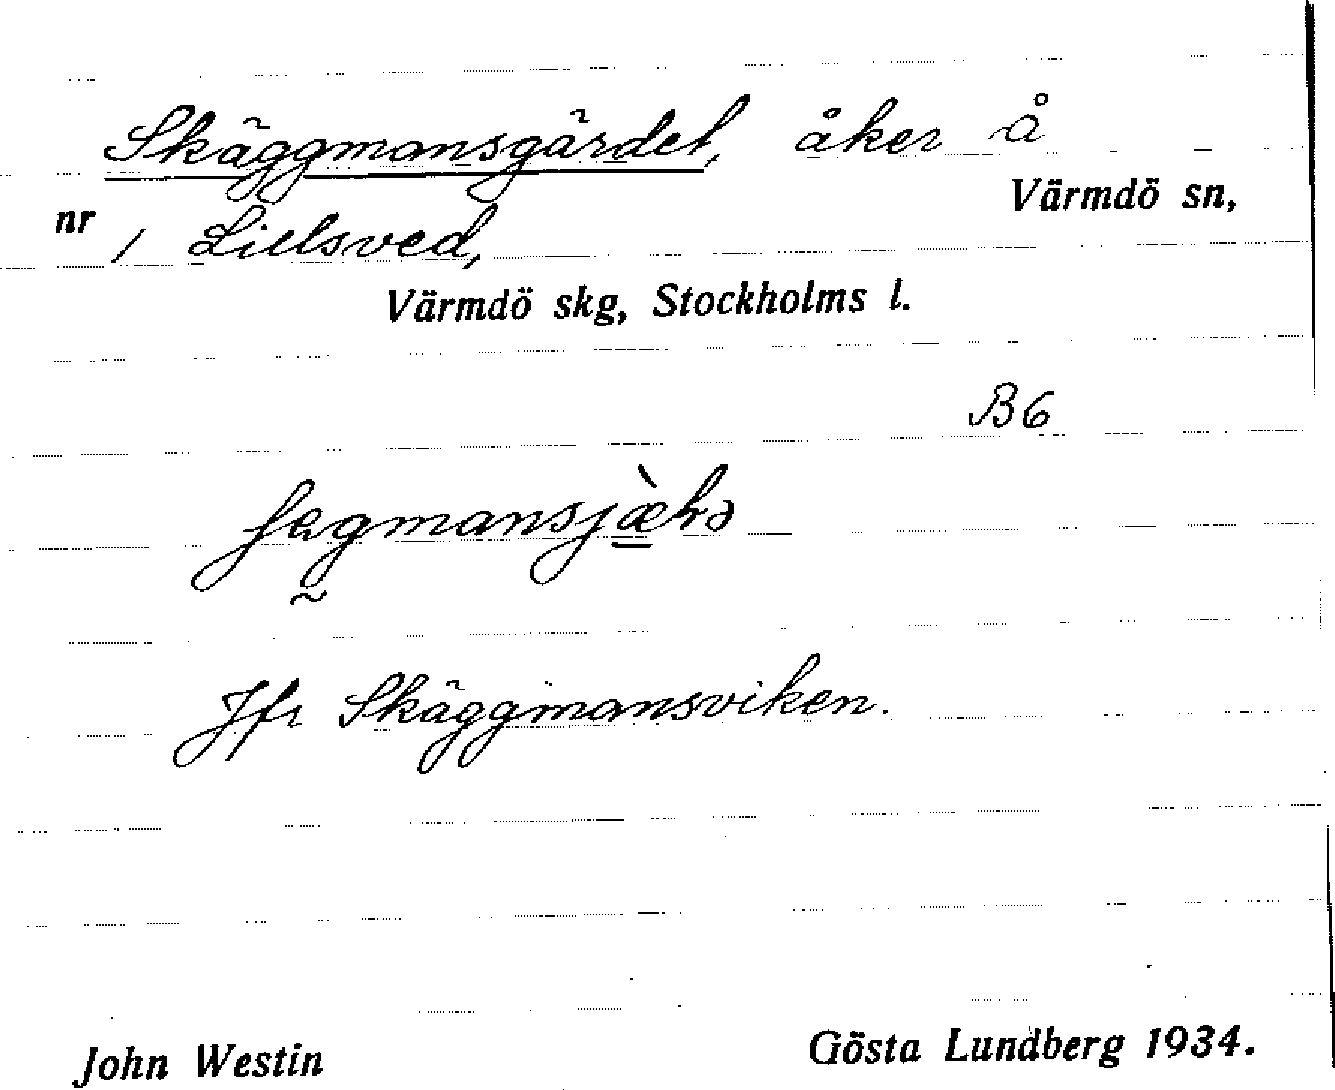 Skäggmansgärdet, åker å
Värmdö sn,
nr 1 Lillsved,
Värmdö skg, Stockholms l.
B6
Jfr Skäggmansviken.
John Westin
Gösta Lundberg 1934.